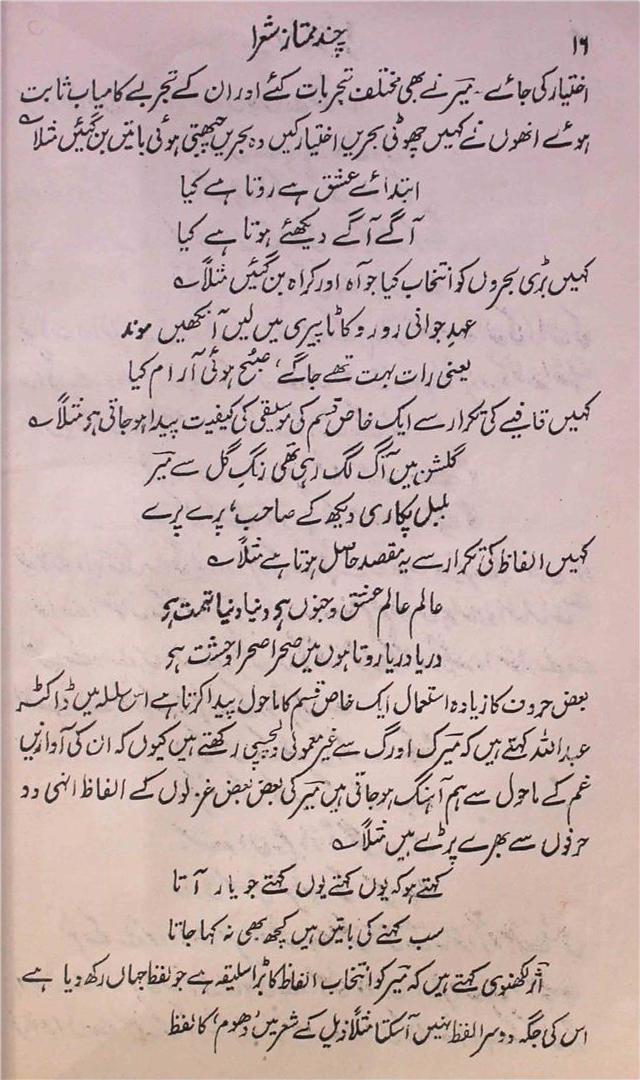 ۱۶
چند ممتاز شعرا
اختیار کی جائے۔ میرؔ نے بھی مختلف تجربات کئے اور ان کے تجربے کامیاب ثابت
ہوئے انھوں نے کہیں چھوٹی بحریں اختیار کیں وہ بحریں چبھتی ہوئی باتیں بن گئیں مثلاً ؎
ابتدائے عشق ہے روتا ہے کیا
آگے آگے دیکھئے ہوتا ہے کیا
کہیں بڑی بحروں کو انتخاب کیا جو آہ اور کراہ بن گئیں مثلاً ؎
عہد جوانی رو رو کاٹا پیری میں لیں آنکھیں موند
یعنی رات بہت تھے جاگے، صبح ہوئی آرام کیا
کہیں قافیے کی تکرار سے ایک خاص قسم کی موسیقی کی کیفیت پیدا ہو جاتی ہی مثلاً ؎
گلشن میں آگ لگ رہی تھی رنگ گل سے میرؔ
بلبل پکاری دیکھ کے صاحب، پرے پرے
کہیں الفاظ کی تکرار سے یہ مقصد حاصل ہوتا ہے مثلاً ؎
عالم عالم عشق و جنوں ہی دنیا دنیا تہمت ہی
دریا دریا روتا ہوں میں صحرا صحرا وحشت ہی
بعض حروف کا زیادہ استعمال ایک خاص قسم کا ماحول پیدا کرتا ہے اس سلسلہ میں ڈاکٹر
عبداللہ کہتے ہیں کہ میرؔ ک اور گ سے غیر معمولی دلچسپی رکھتے ہیں کیوں کہ ان کی آوازیں
غم کے ماحول سے ہم آہنگ ہو جاتی ہیں میرؔ کی بعض بعض غزلوں کے الفاظ انہی دو
حرفوں سے بھرے پڑے ہیں مثلاً ؎
کہتے ہو کہ یوں کہتے یوں کہتے جو یار آتا
سب کہنے کی باتیں ہیں کچھ بھی نہ کہا جاتا
اثرؔ لکھنوی کہتے ہیں کہ میرؔ کو انتخاب الفاظ کا بڑا سلیقہ ہے جو لفظ جہاں رکھ دیا ہے
اس کی جگہ دوسرا لفظ نہیں آسکتا مثلاً ذیل کے شعر میں 'دھوم' کا لفظ